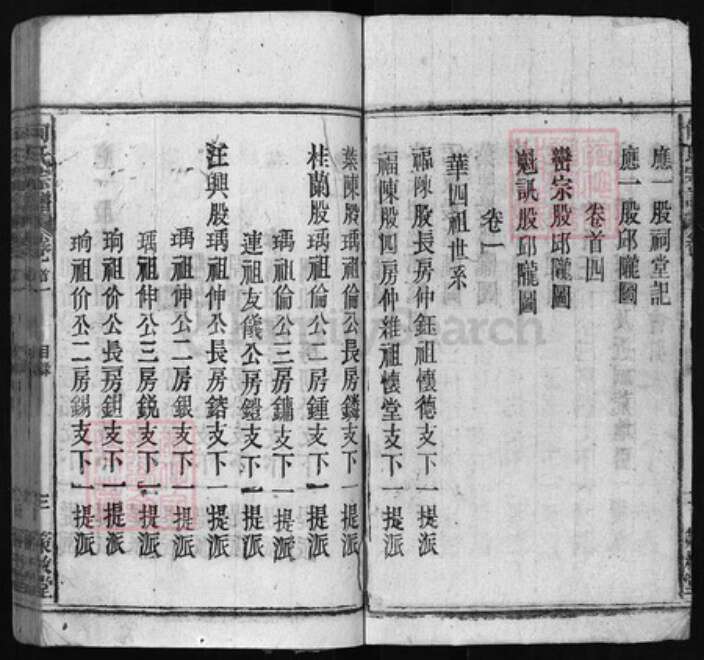 應一股祠堂記
應一股邱隴圖
卷首四
巒宗股邱隴圖
魁訊股邱隴圖
卷一
華四祖世系
福陳股長房仲鈺祖懷德支下一提派
福陳股四房仲濰祖懷堂支下一提派
葉陳股瑀祖倫公長房鏻支下一提派
桂蘭股瑀祖倫公二房鍾支下一提派
瑀祖倫公三房鏞支下一提派
連祖友儀公房鎧支下一提派
汪興股瑀祖伸公長房鍇支下一提派
瑀祖伸公二房銀支下一提派
瑀祖伸公三房銳支下一提派
珦祖价公長房鉭支下一提派
珦祖价公二房錫支下一提派
何氏宗譜 卷首一 目錄 三 策敏堂